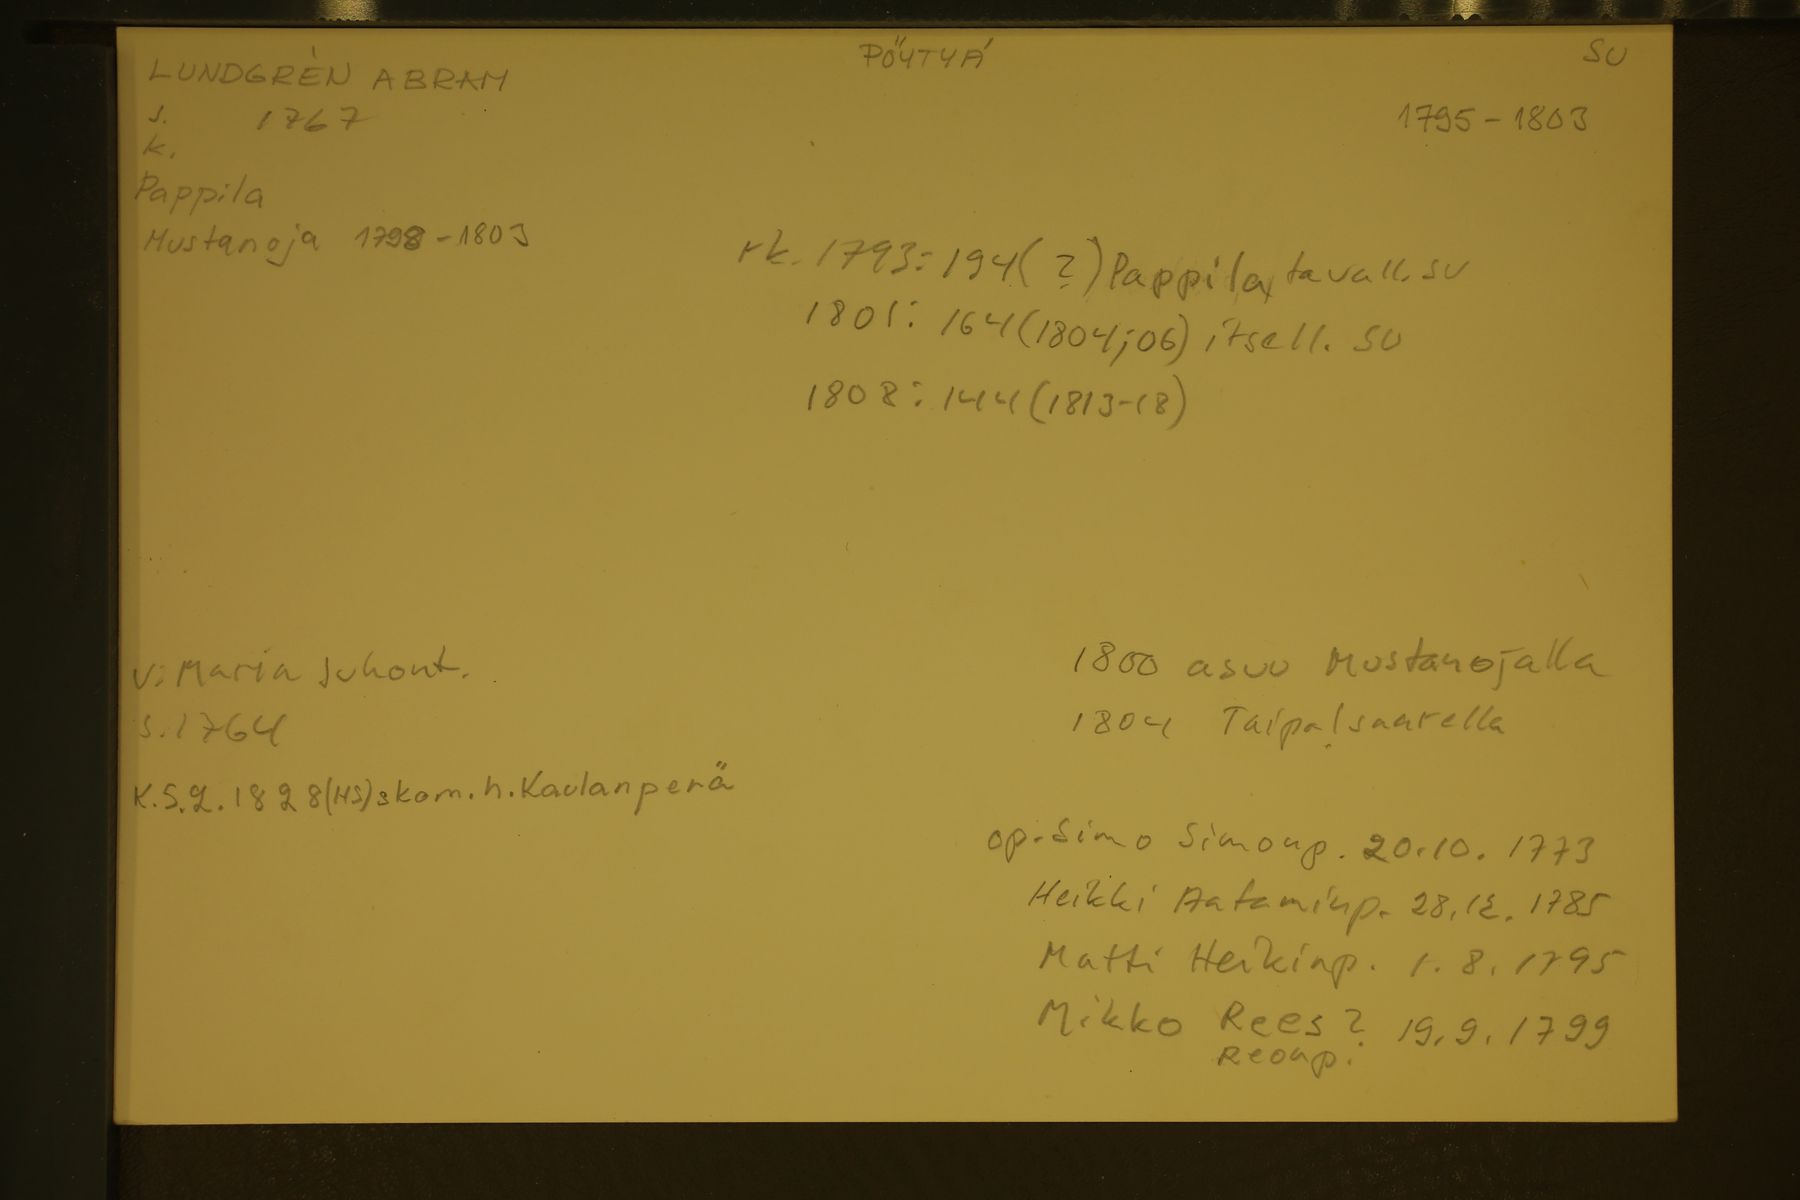 LUNDGRÈN ABRAM
PÖYTYÄ
SU
s. 1767
1795-1803
k.
Pappila
Mustanoja 1798-1803
rk. 1793: 194(?) Pappila, tavall. su
1801: 164(1804; 06) itsell. SU
1808: 144(1813-18)
v: Maria Juhont.
s. 1764
K.5.2.1828(HS)skom.h.Kaulanperä
1800 asuu Mustanojalla
1804 Taipalsaarella
op. Simo Simonp. 20.10. 1773
Heikki Aataminp. 28.12. 1785
Matti Heikinp. 1.8. 1795
Mikko Rees? 19.9. 1799
Reonp.